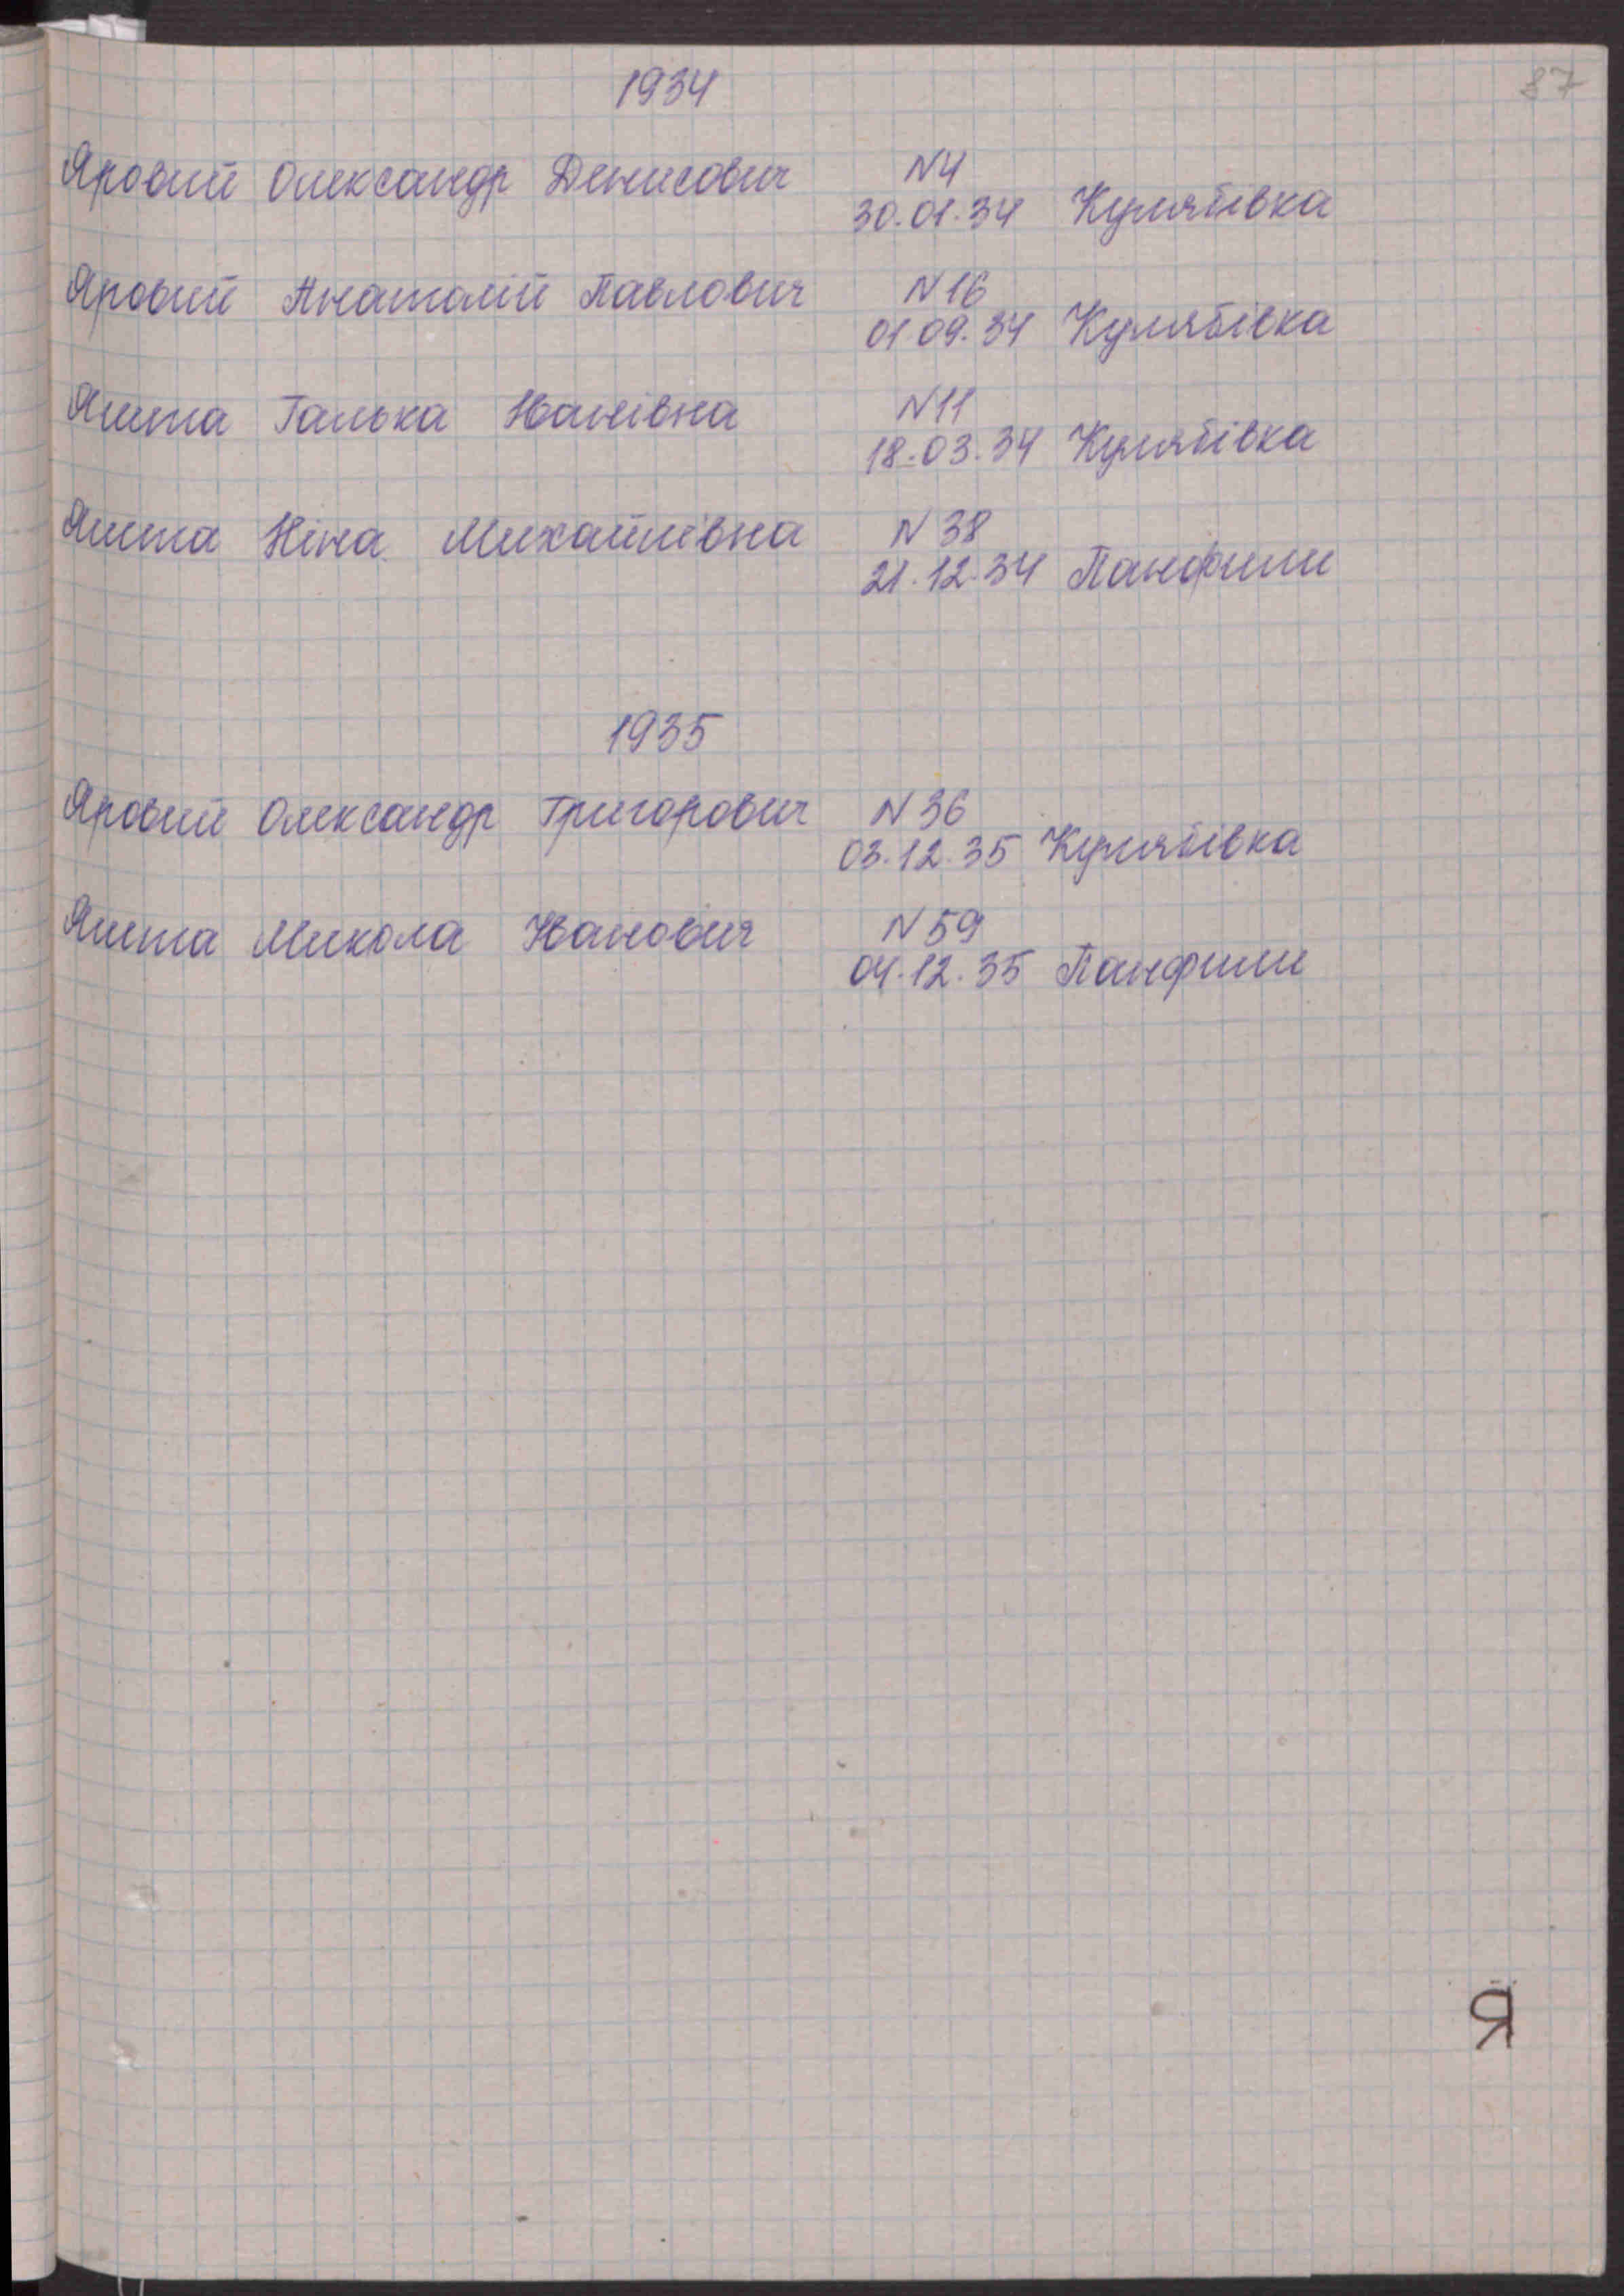 87
1934
Яровий Олександр Денисович N4
30.01.34 Кулябівка
Яровий Анатолій Павлович N16
01.09.34 Кулябівка
Ялита Галька Іванівна N11
18.03.34 Кулябівка
Ялита Ніна Михайлівна N38
21.12.34 Панфили
1935
Яровий Олександр Григорович N36
03.12.35 Кулябівка
Ялита Микола Іванович N59
04.12.35 Панфили
Я